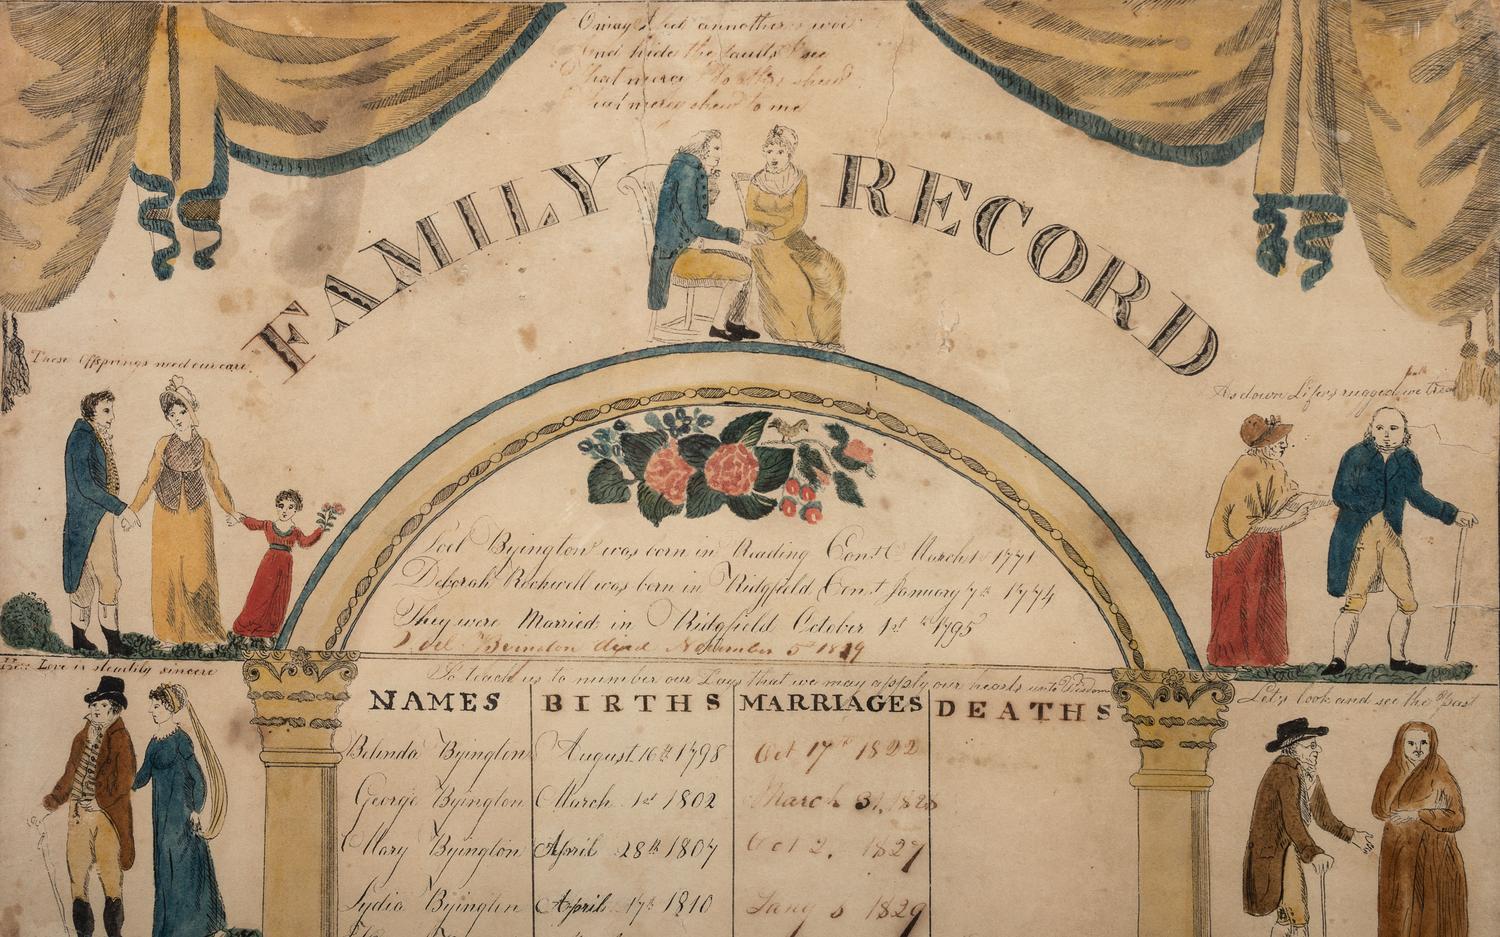 O may I feel annother's woe
And hide the faults I see
That mercy I to
That mercy shew to me
FAMILY RECORD
These Offsprings need our care.
As down Life's rugged path we tread
Joel Byington was born in Reading Con.t March 1771
Deborah Rockwell was born in Ridgfield Con.t January 7th 1774
They were Married in Ridgfield October 1st 1795
Joel Byington died November 5 1829
Love is steadily sincere
So teach us to number our Days that we may apply our hearts unto Wisdom
Let's look and see the Past
NAMES BIRTHS MARRIAGES DEATHS
Belinda Byington August 16th 1798 Oct 17th 1822
George Byington March 1st 1802 March 31, 1826
Mary Byington April 28th 1807 Oct 2, 1827
Lydia Byington April 17th 1810 1829